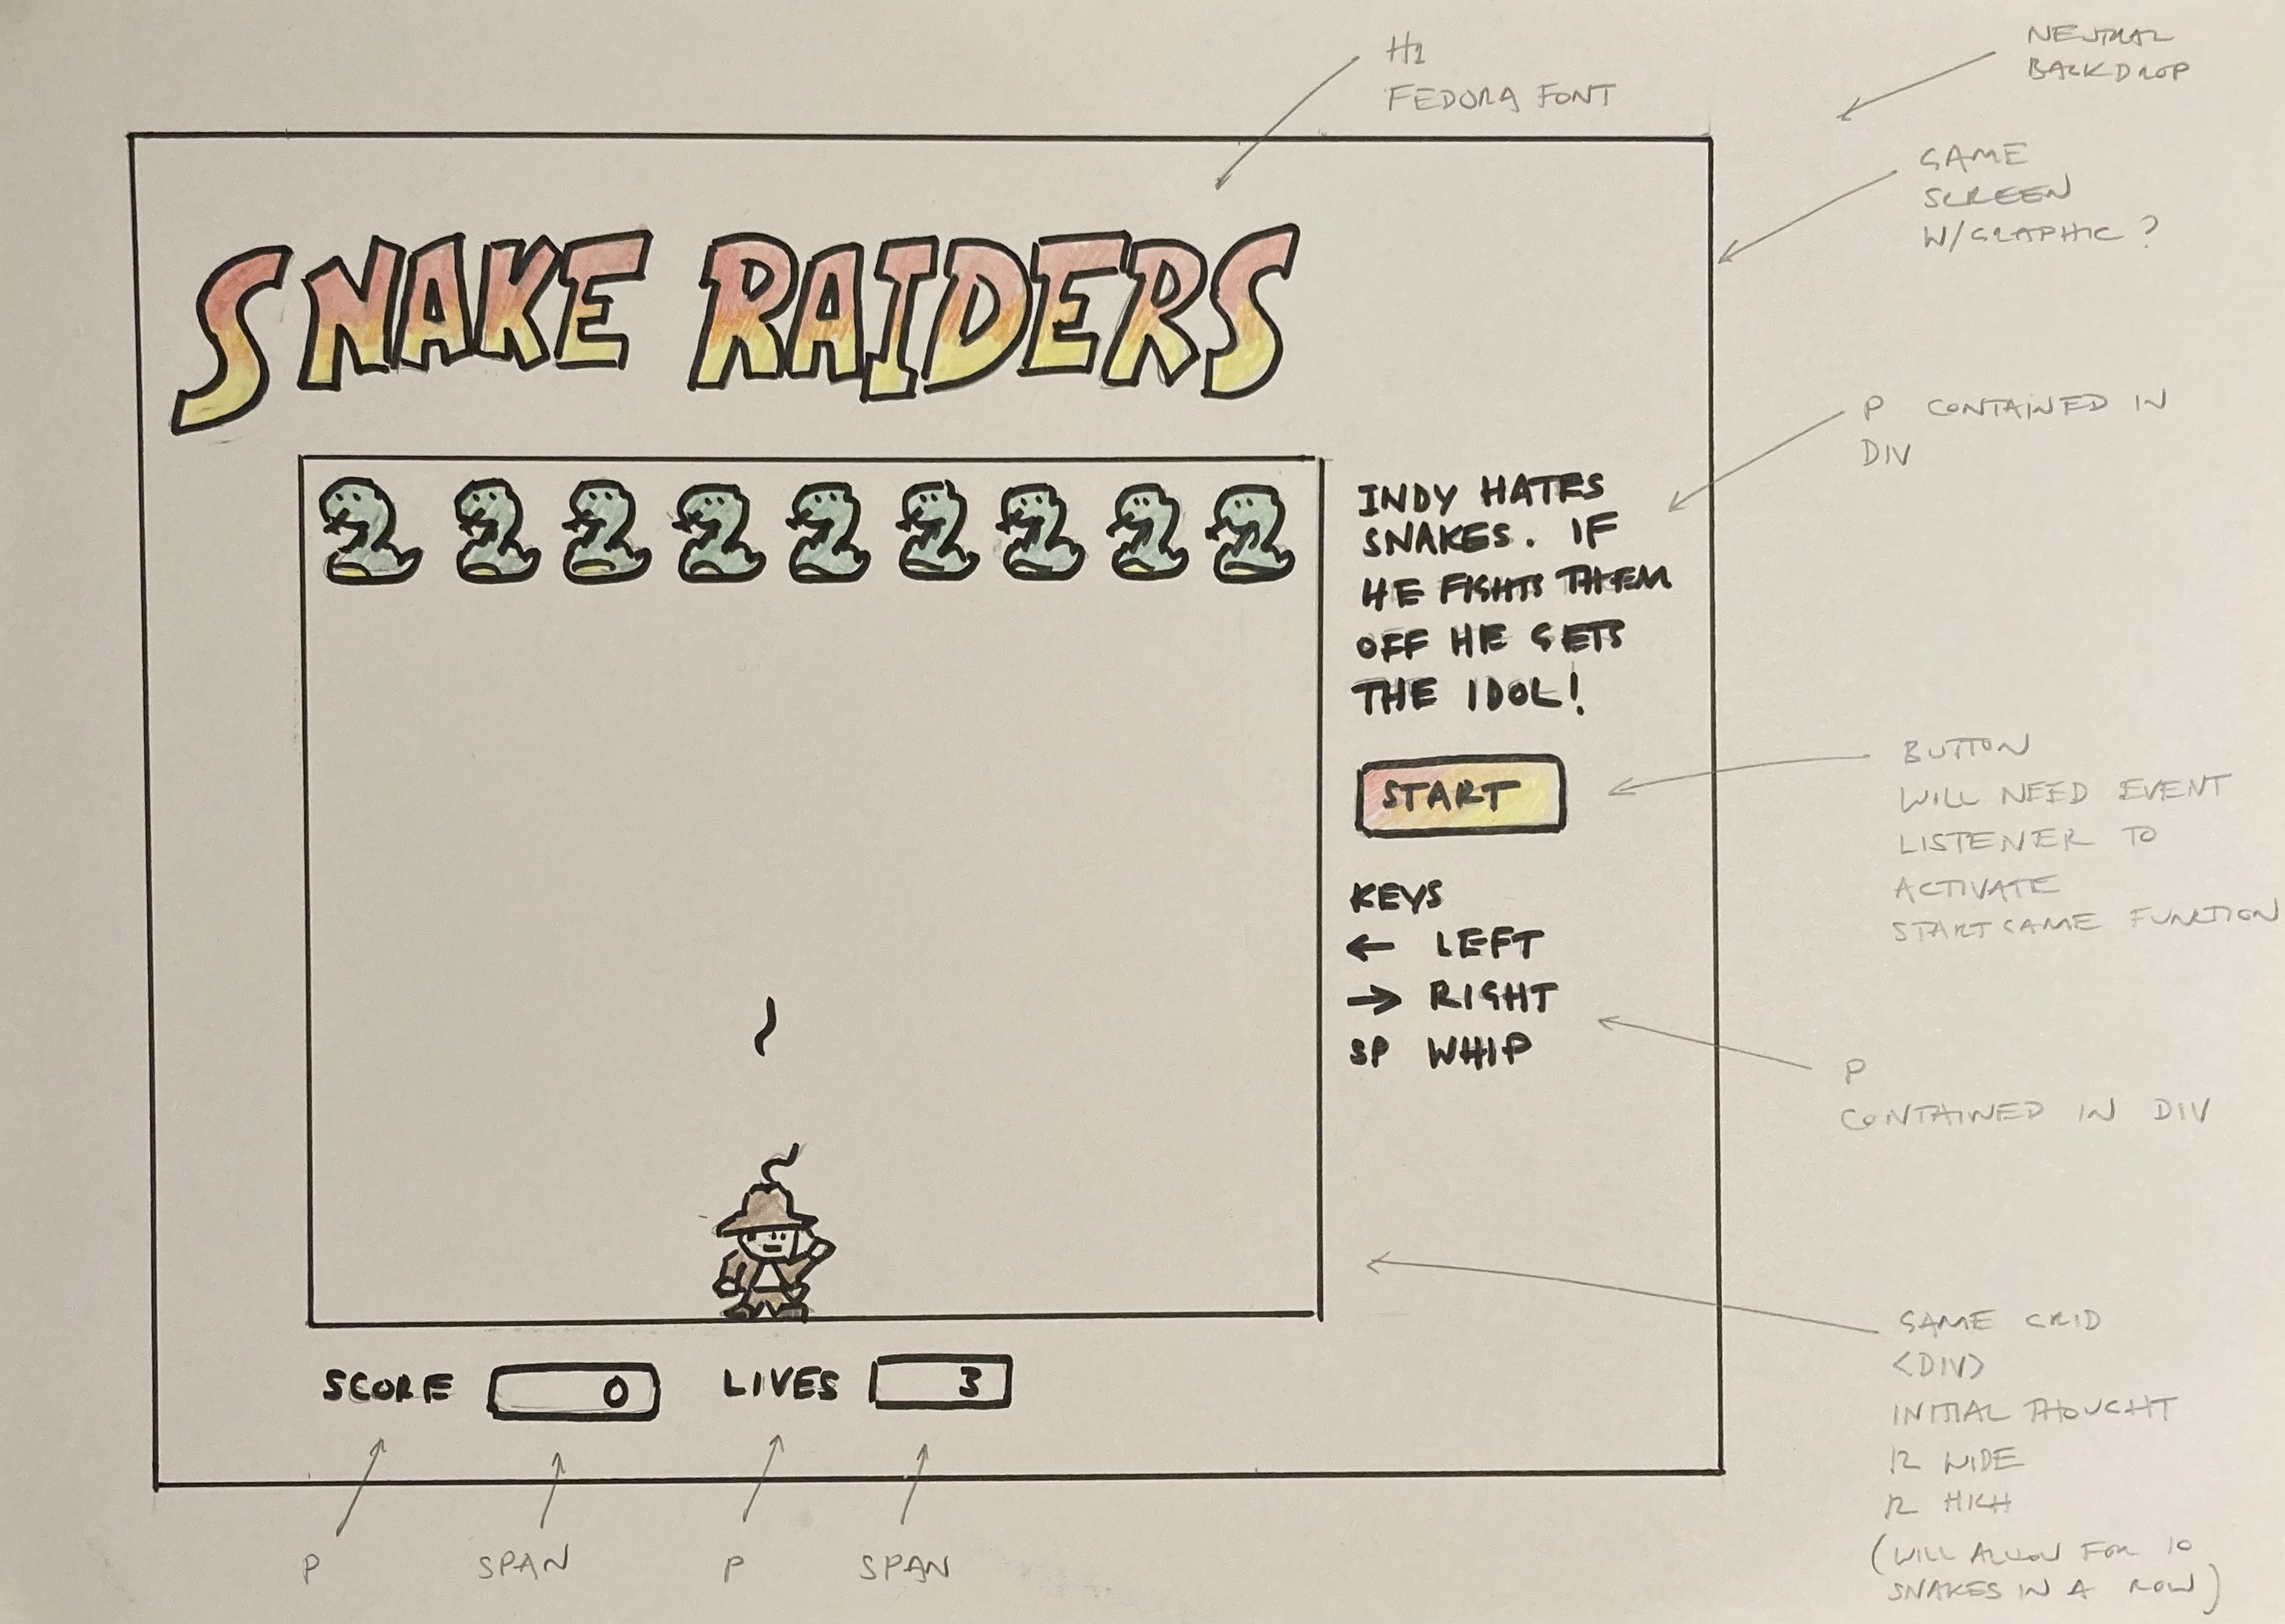 H1
FEDORA FONT
NEUTRAL
BACKDROP
GAME
SCREEN
W/GRAPHIC ?
SNAKE RAIDERS
P CONTAINED IN
DIV
INDY HATES
SNAKES. IF
HE FIGHTS THEM
OFF HE GETS
THE IDOL!
START
BUTTON
WILL NEED EVENT
LISTENER TO
ACTIVATE
STARTGAME FUNCTION
KEYS
← LEFT
→ RIGHT
SP WHIP
P
CONTAINED IN DIV
GAME GRID
<DIV>
INITIAL THOUGHT
12 WIDE
12 HIGH
(WILL ALLOW FOR 10
SNAKES IN A ROW)
SCORE 0 LIVES 3
P SPAN P SPAN